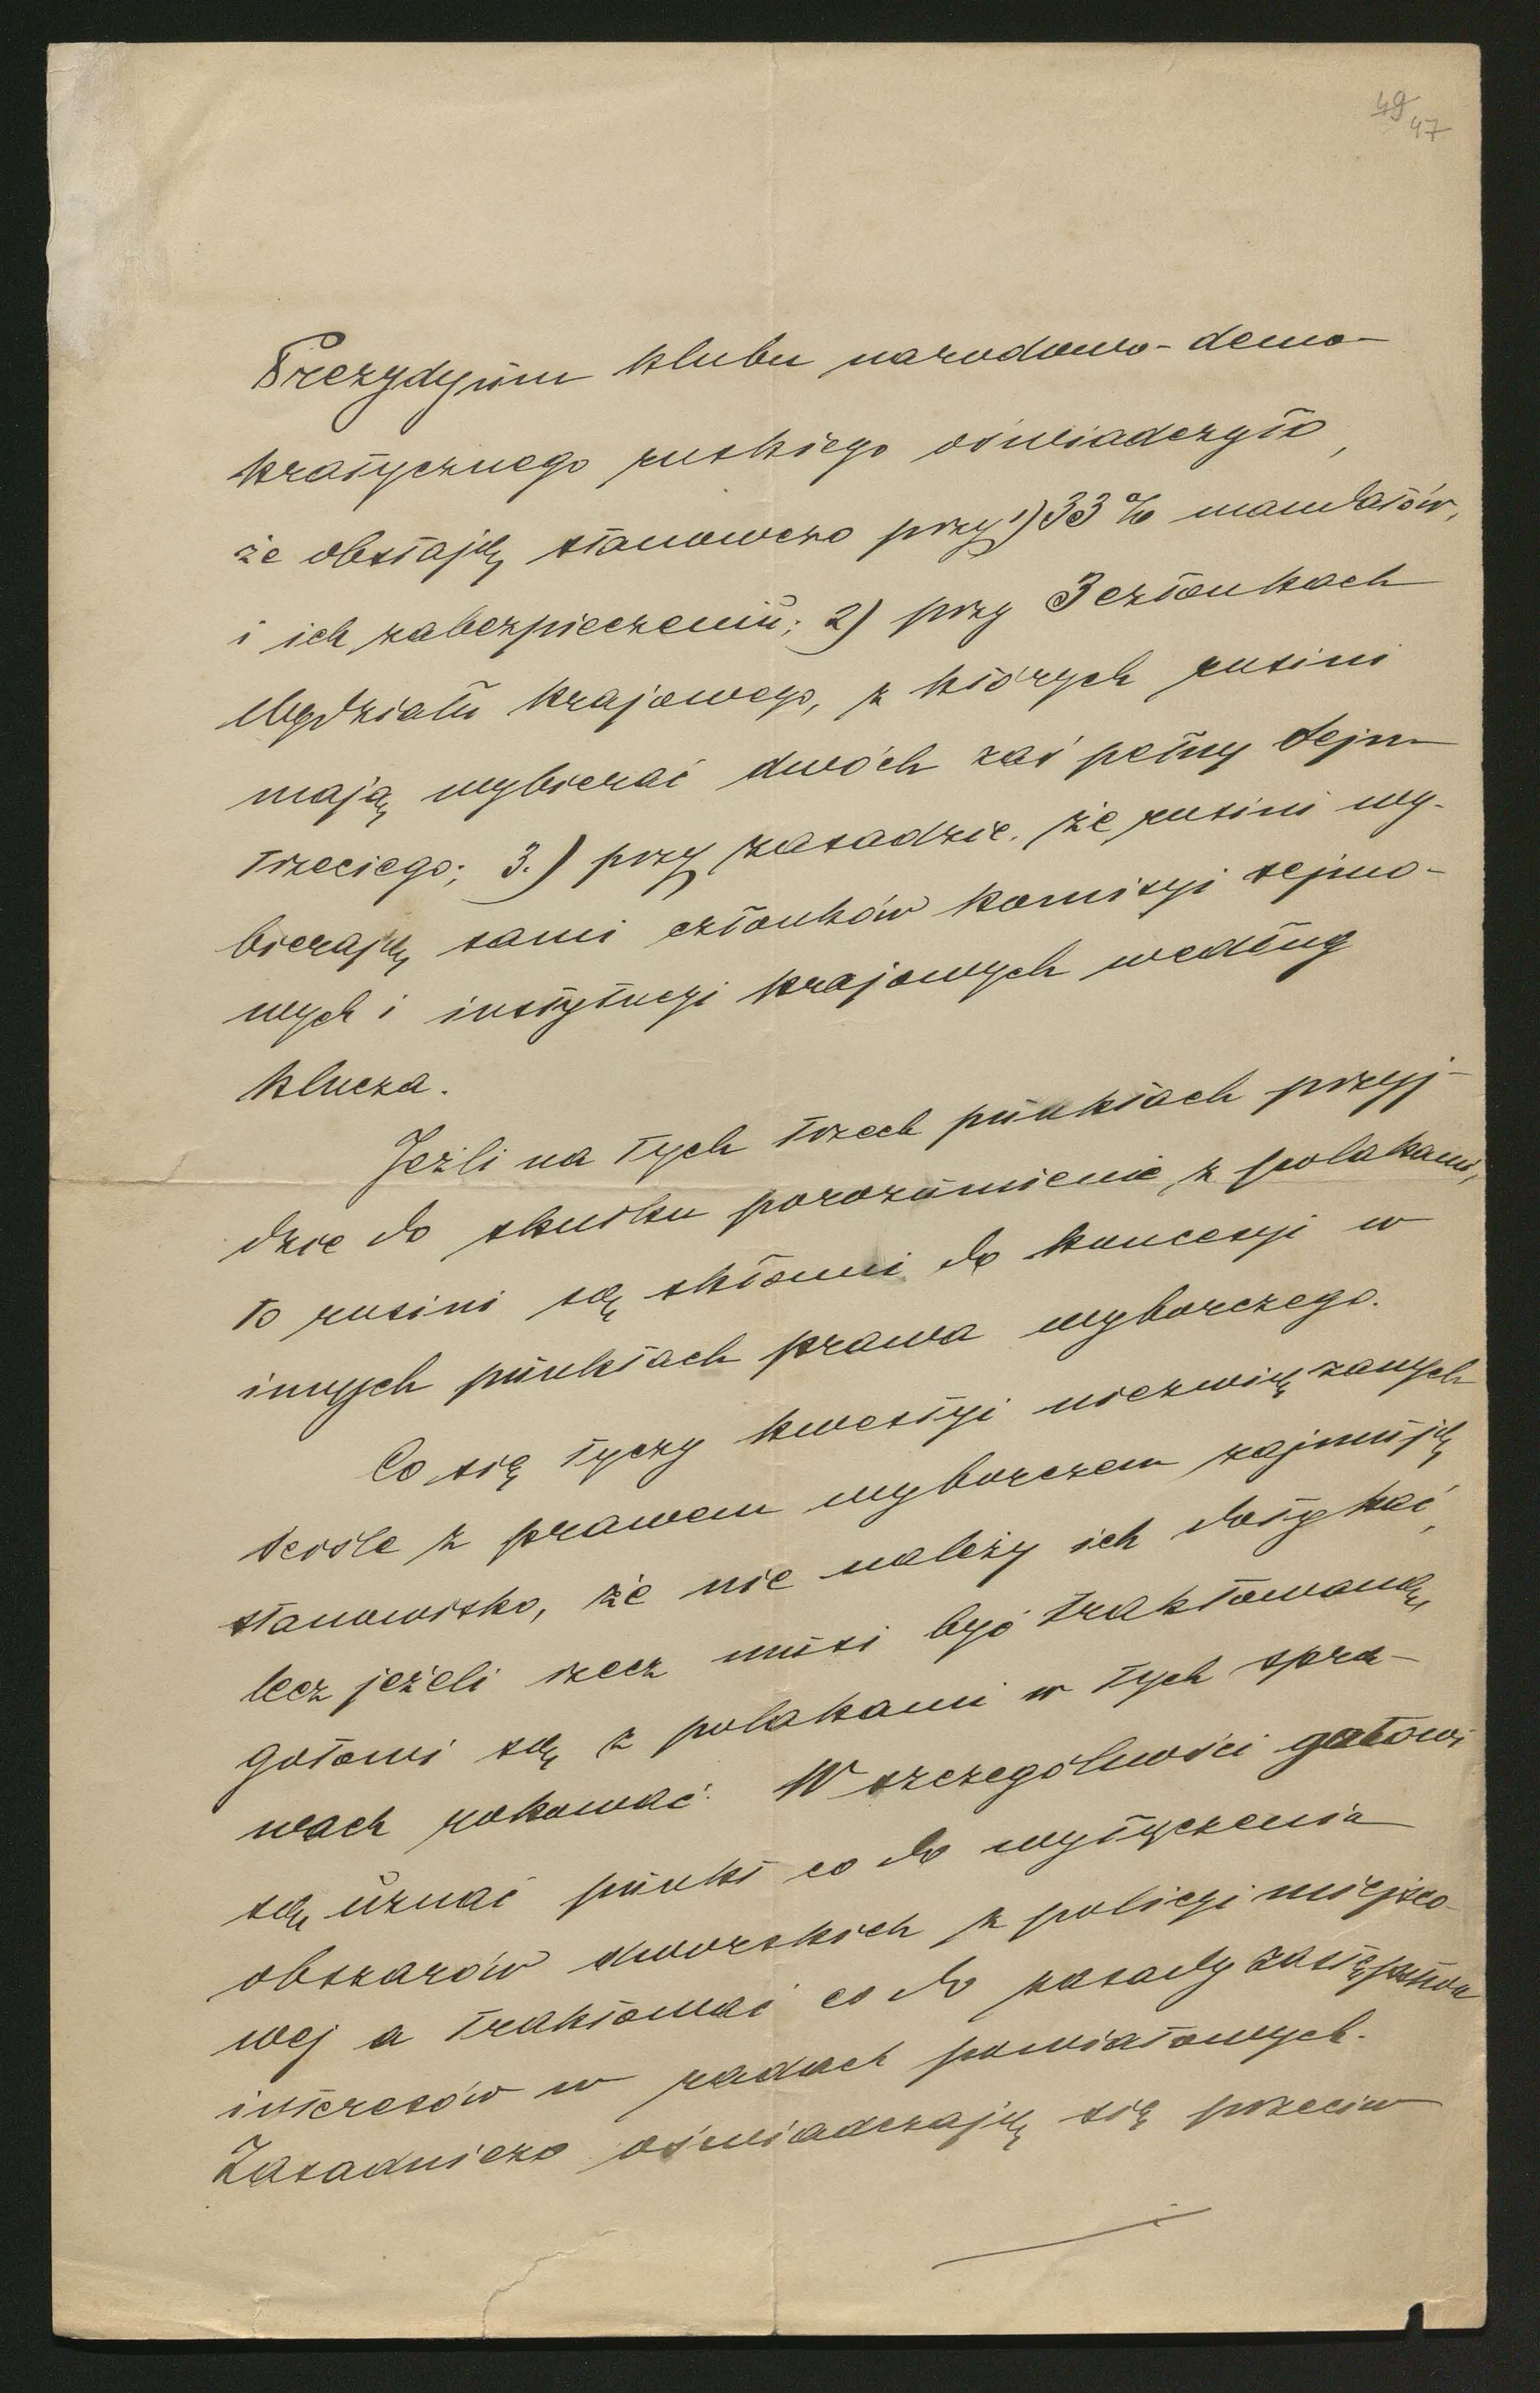 49
47
Prezydyum klubu narodowo-demo-
kratycznego ruskiego oświadczyło,
że obstają stanowczo przy 1) 33% mandatów,
i ich zabezpieczeniu; 2) przy 3 członkach
Wydziału krajowego, z których rusini
mają wybierać dwóch zaś pełny Sejm
trzeciego; 3.) przy zasadzie, że rusini wy-
bierają sami członków komisyi sejmo-
wych i instytucyi krajowych według
klucza.
Jeżli na tych trzech punktach przyj-
dzie do skutku porozumienie z polakami,
to rusini są skłonni do koncesyi w
innych punktach prawa wyborczego.
Co się tyczy kwestyi niezwiązanych
ściśle z prawem wyborczem zajmują
stanowisko, że nie należy ich dotykać,
lecz jeżeli rzecz musi być traktowaną,
gotowi są z polakami w tych spra-
wach rokować. W szczególności gotowi
są uznać punkt co do wyłączenia
obszarów dworskich z policyi miejsco-
wej a traktować co do zasady zastępstwa
interesów w radach powiatowych.
Zasadniczo oświadczają się przeciw